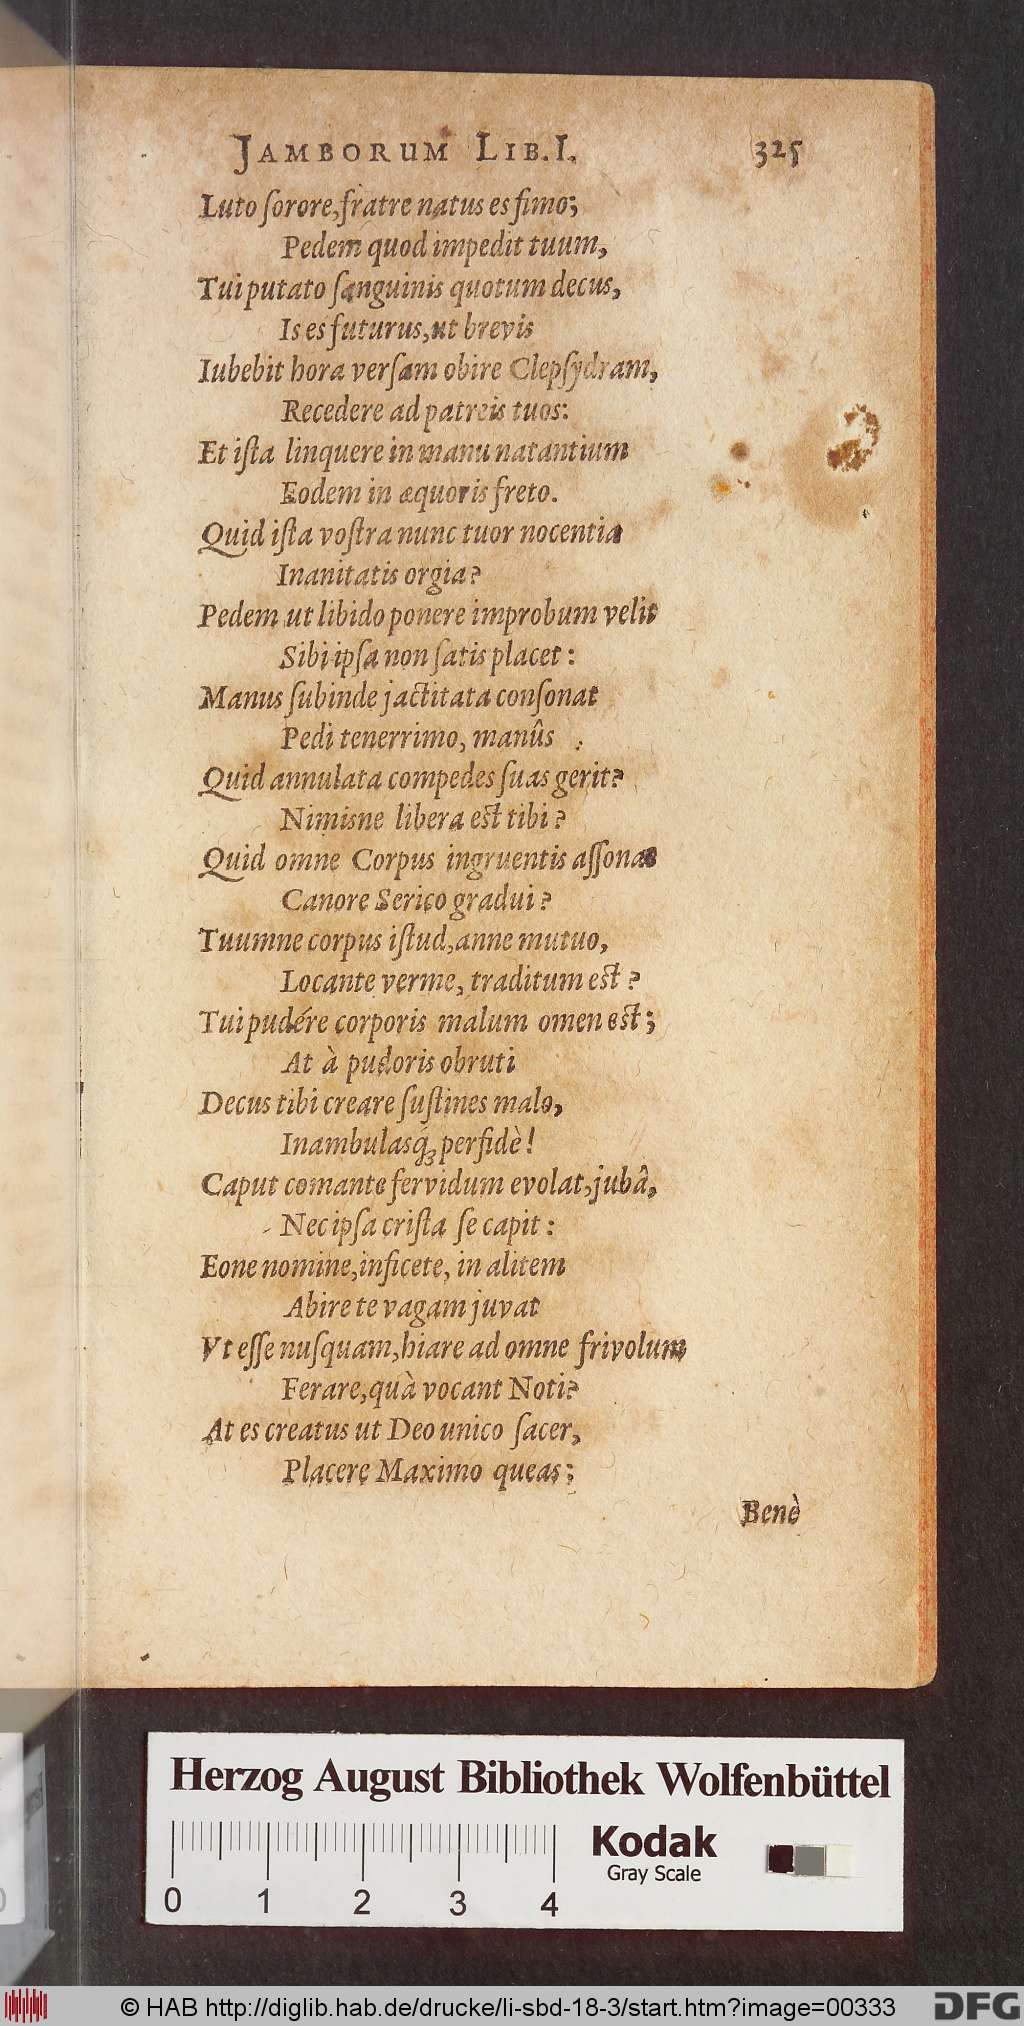 JAMBORUM LIB. I. 325
Luto ſorore, fratre natus es fimo;
Pedem quod impedit tuum,
Tui putato ſanguinis quotum decus,
Is es futurus, ut brevis
Iubebit hora verſam obire Clepſydram,
Recedere ad patreis tuos:
Et iſta linquere in manu natantium
Eodem in æquoris freto.
Quid iſta voſtra nunc tuor nocentia
Inanitatis orgia?
Pedem ut libido ponere improbum velit
Sibi ipſa non ſatis placet:
Manus ſubinde jactitata conſonat
Pedi tenerrimo, manûs
Quid annulata compedes ſuas gerit?
Nimisne libera est tibi?
Quid omne Corpus ingruentis aſſonat
Canore Serico gradui?
Tuumne corpus iſtud, anne mutuo,
Locante verme, traditum est?
Tui pudére corporis malum omen est;
At à pudoris obruti
Decus tibi creare ſuſtines malo,
Inambulasq́ꝫ perfidè!
Caput comante fervidum evolat, jubâ,
Nec ipſa criſta ſe capit:
Eone nomine, inficete, in alitem
Abire te vagam juvat
Vt eſſe nuſquam, hiare ad omne frivolum
Ferare, quà vocant Noti?
At es creatus ut Deo unico ſacer,
Placere Maximo queas;
Benè
Herzog August Bibliothek Wolfenbüttel
Kodak
Gray Scale
0 1 2 3 4
© HAB http://diglib.hab.de/drucke/li-sbd-18-3/start.htm?image=00333
DFG